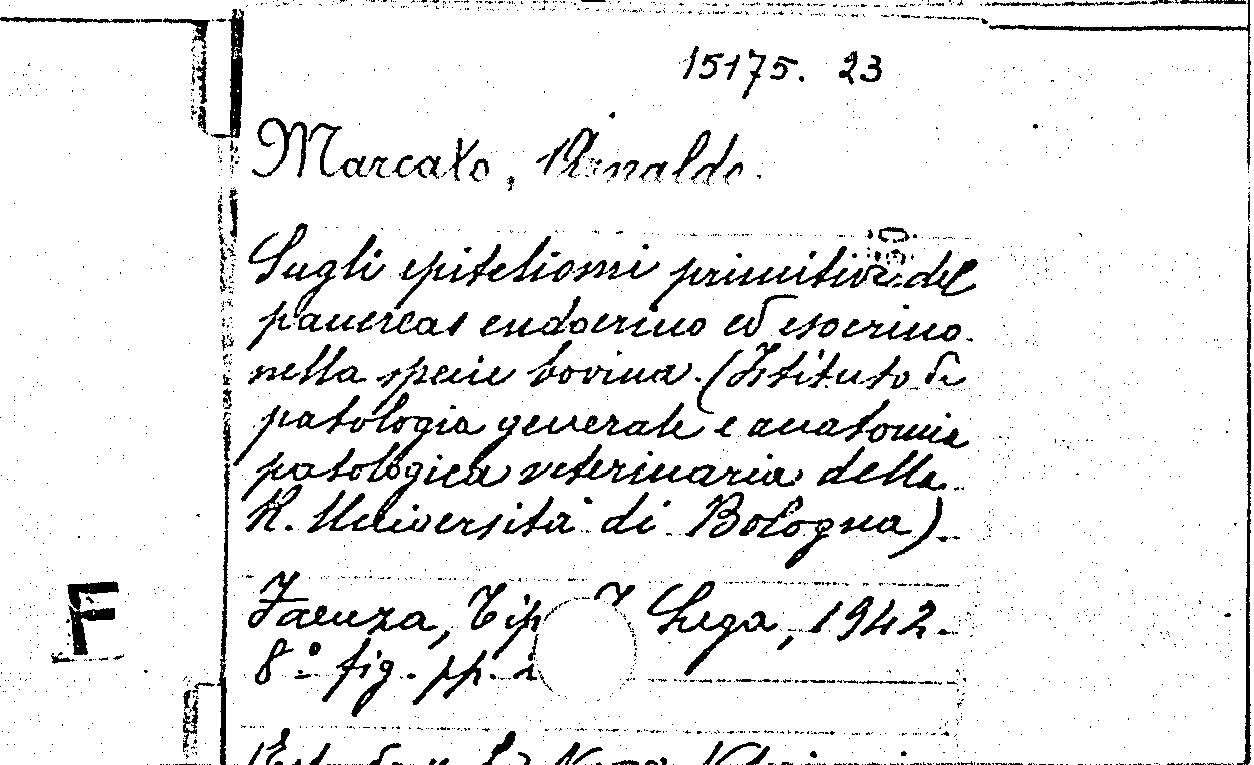 15175. 23
Marcato, Rinaldo.
Sugli epiteliomi primitivi del
pancreas endocrino ed esocrino
nella specie bovina. (Istituto di
patologia generale e anatomia
patologica veterinaria della
R. Università di Bologna).
F
Faenza, Tip. F. Lega, 1942.
8° fig. pp.